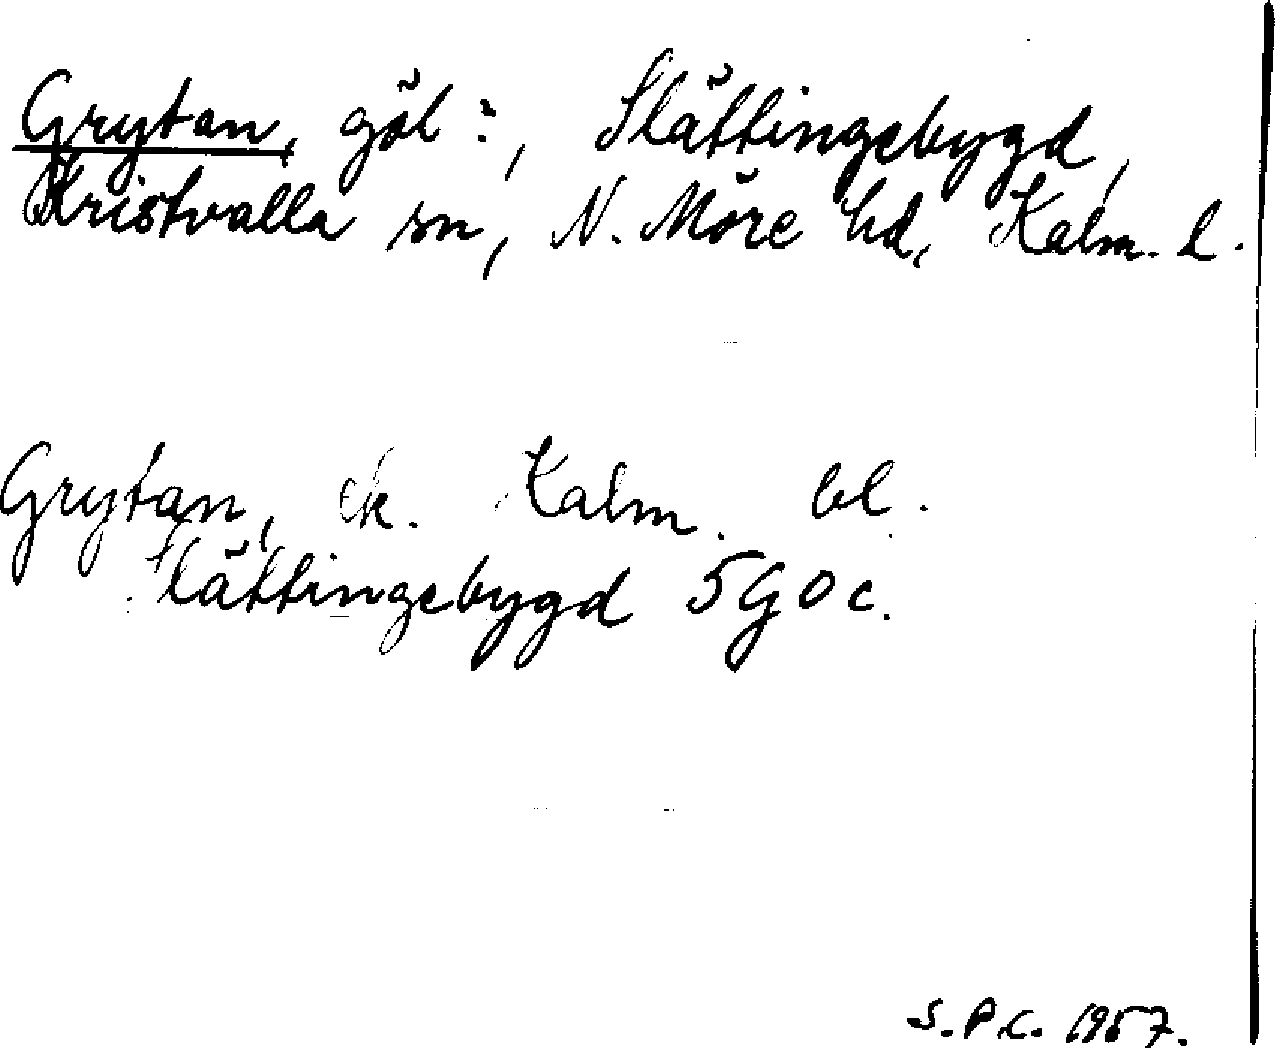 Grytan, göl:, Slättingebygd,
Kristvalla sn, N. Möre hd, Kalm. l.
Grytan, ek. Kalm. bl.
Slättingebygd 5G0c.
S.P.C. 1957.